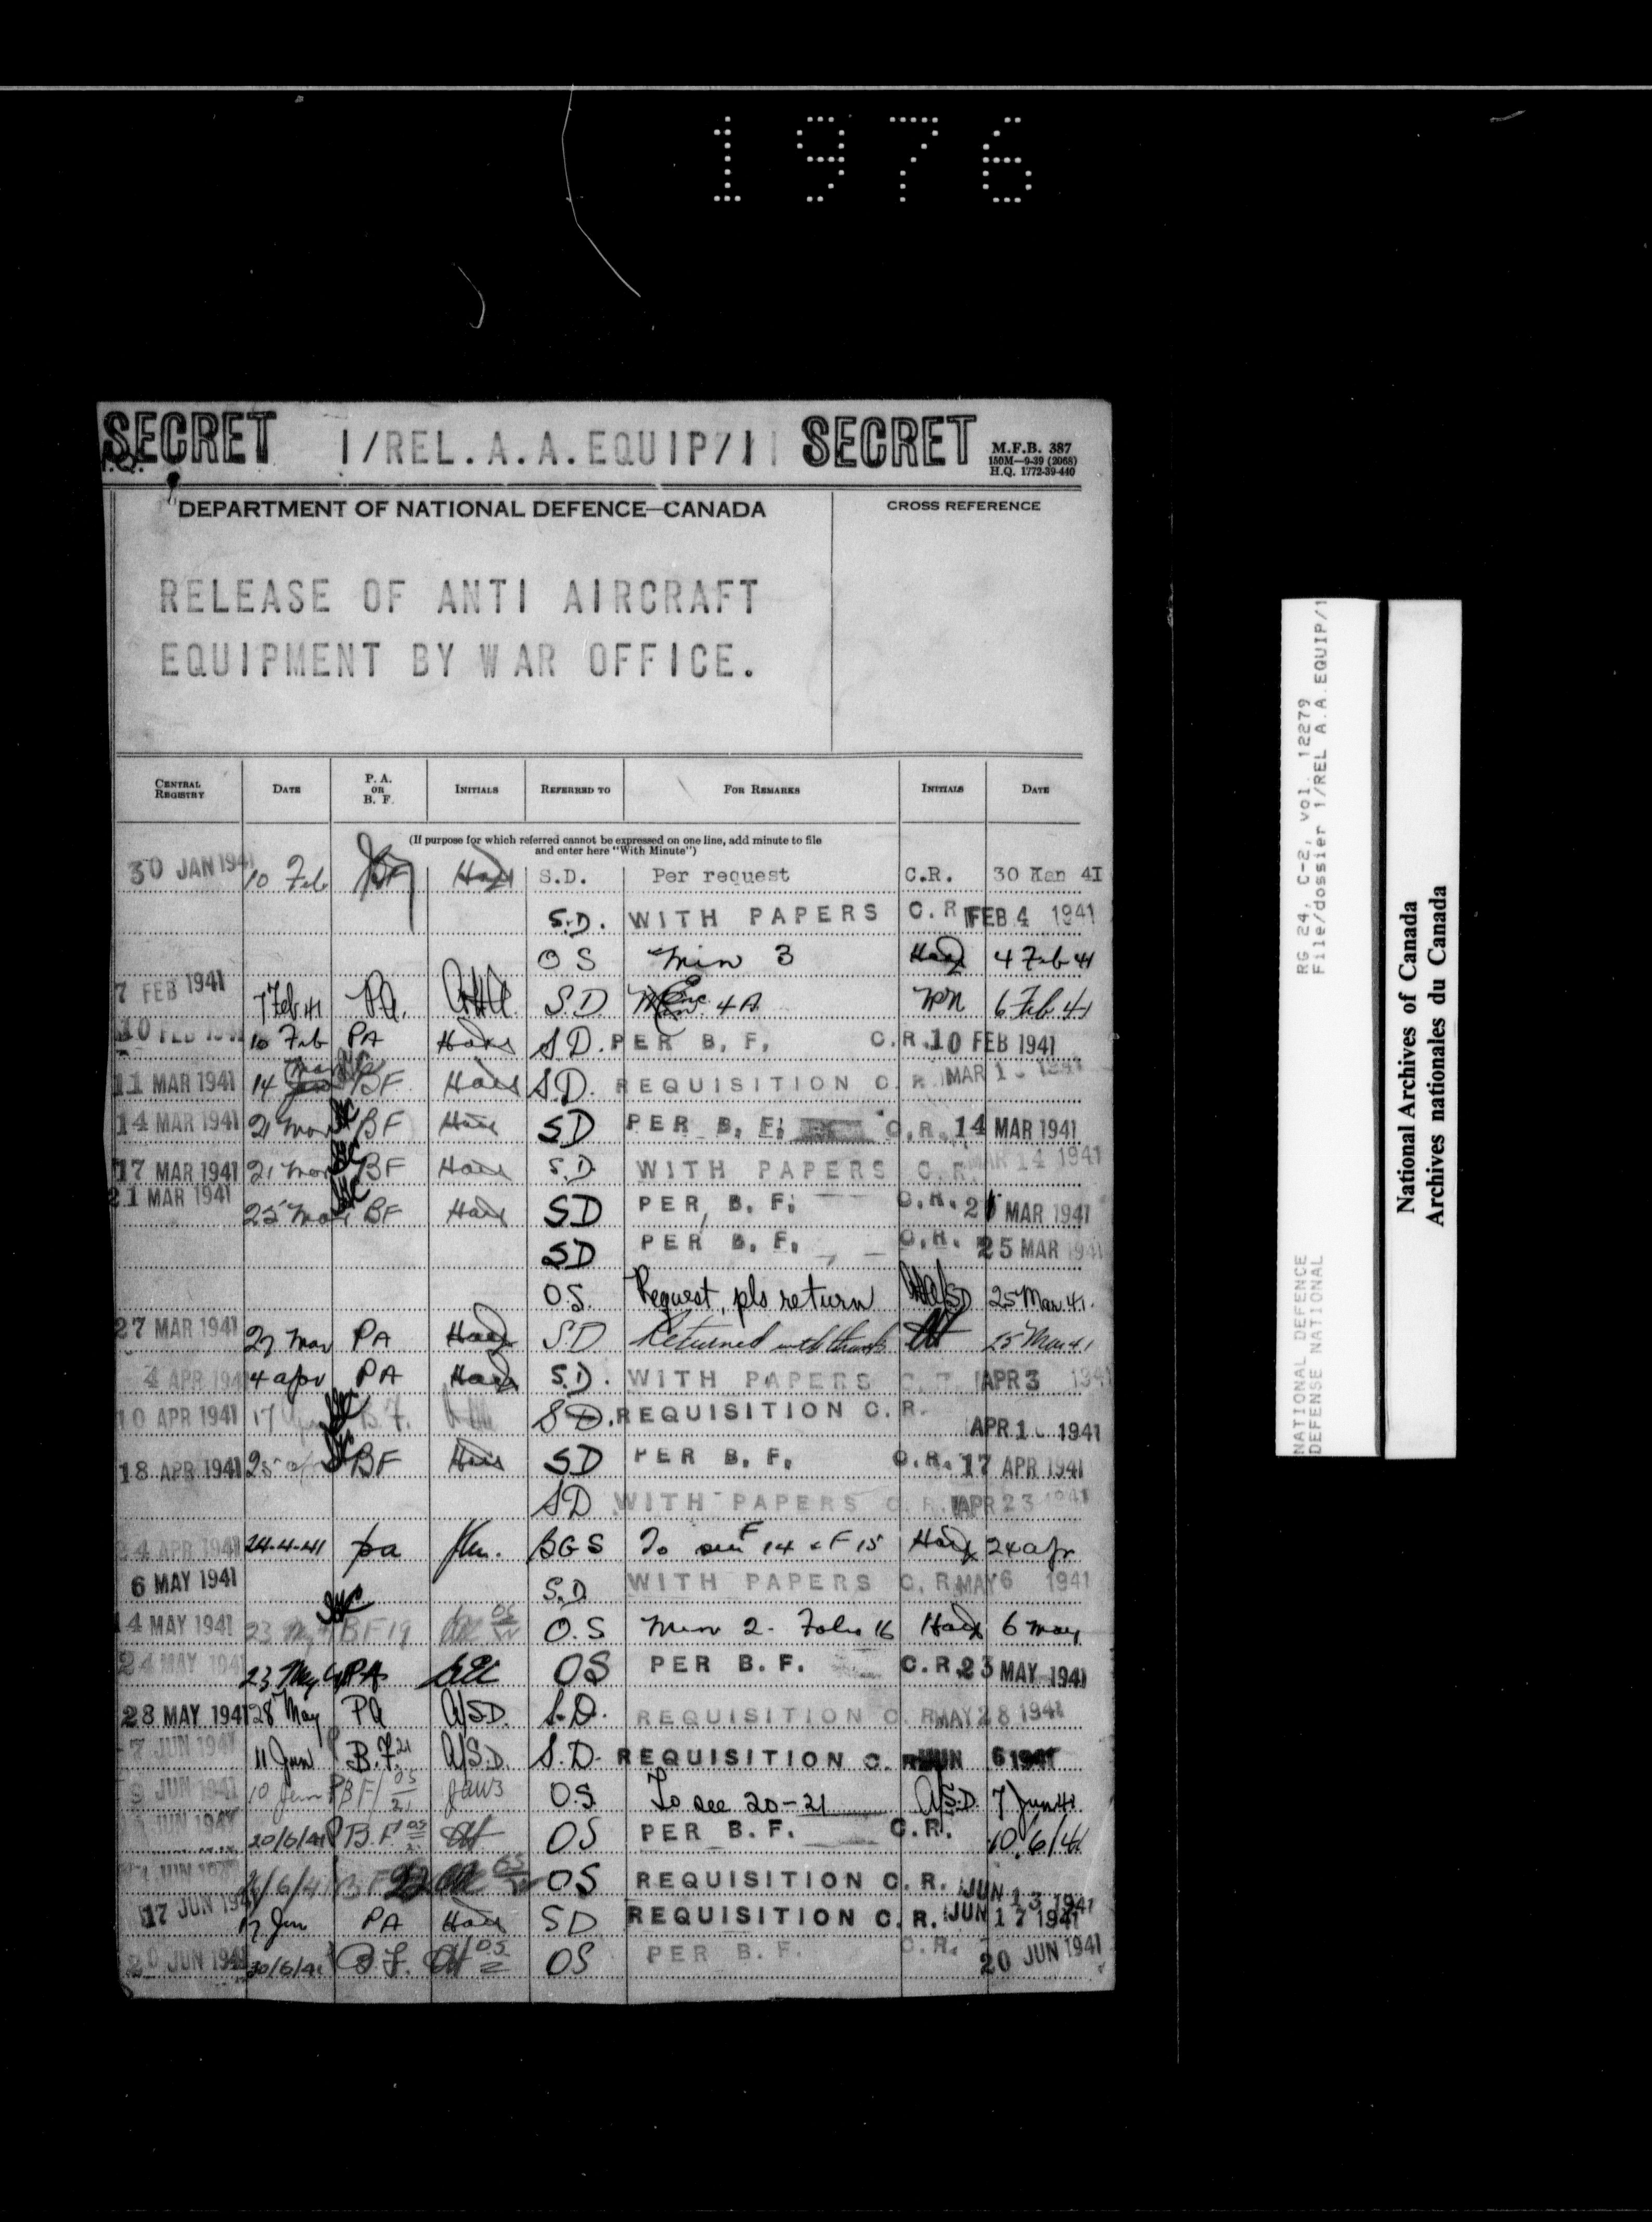 1976
SECRET 1/REL.A.A.EQUIP/1 SECRET
M.F.B. 387
150M—9-39 (2068)
H.Q. 1772-39-440
DEPARTMENT OF NATIONAL DEFENCE—CANADA
CROSS REFERENCE
RELEASE OF ANTI AIRCRAFT
EQUIPMENT BY WAR OFFICE.
CENTRAL REGISTRY DATE P. A. OR B. F. INITIALS REFERRED TO FOR REMARKS INITIALS DATE
(If purpose for which referred cannot be expressed on one line, add minute to file
and enter here "With Minute")
30 JAN 1941 10 Feb BF S.D. Per request C.R. 30 Jan 41
S.D. WITH PAPERS C.R. FEB 4 1941
OS Min 3 4 Feb 41
7 FEB 1941 7 Feb 41 PA. S.D. Enc. 4A 6 Feb 41
10 FEB 1941 10 Feb PA S.D. PER B. F. C.R. 10 FEB 1941
11 MAR 1941 14 Mar BF S.D. REQUISITION C.R. MAR 1941
14 MAR 1941 21 Mar BF SD PER B. F. C.R. 14 MAR 1941
17 MAR 1941 21 Mar BF S.D. WITH PAPERS C.R. MAR 14 1941
21 MAR 1941 25 Mar BF SD PER B. F. C.R. 21 MAR 1941
SD PER B. F. C.R. 25 MAR 1941
O.S. Request, pls return A/SD 25 Mar. 41.
27 MAR 1941 27 Mar PA S.D. Returned with thanks 25 Mar 41
4 APR 1941 4 Apr PA S.D. WITH PAPERS C.R. APR 3 1941
10 APR 1941 17 B.F. S.D. REQUISITION C.R. APR 1941
18 APR 1941 25 Apr BF SD PER B. F. C.R. 17 APR 1941
SD WITH PAPERS C.R. APR 23 1941
24 APR 1941 24-4-41 pa BGS To see F 14 & F 15 24 Apr
6 MAY 1941 S.D. WITH PAPERS C.R. MAY 6 1941
14 MAY 1941 23 May BF 19 O.S. Min 2. Folio 16 6 May
24 MAY 1941 23 May 41 PA OS PER B. F. C.R. 23 MAY 1941
28 MAY 1941 28 May PA A/S.D. S.D. REQUISITION C.R. MAY 28 1941
7 JUN 1941 11 Jun B.F. 21 A/S.D. S.D. REQUISITION C.R. JUN 6 1941
9 JUN 1941 10 Jun BF OS 21 O.S. To see 20-21 A/S.D. 7 Jun 41
JUN 1941 20/6/41 B.F. OS OS PER B. F. C.R. 10/6/41
JUN /6/41 BF 22 OS OS REQUISITION C.R. JUN 13 1941
17 JUN 1941 17 Jun PA SD REQUISITION C.R. JUN 17 1941
20 JUN 1941 20/6/41 B.F. OS 2 OS PER B. F. C.R. 20 JUN 1941
RG 24, C-2, vol. 12279
File/dossier 1/REL A.A.EQUIP/1
NATIONAL DEFENCE
DEFENSE NATIONAL
National Archives of Canada
Archives nationales du Canada